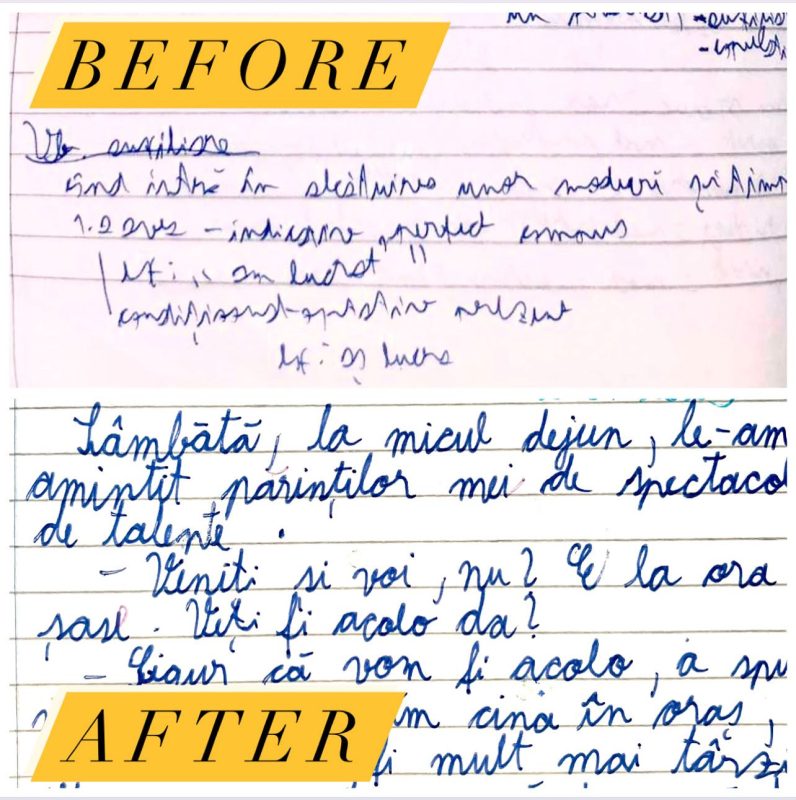 BEFORE
- auxiliar
Vb. auxiliare
când intră în alcătuirea unor moduri și timp
1. a avea - indicativ, perfect compus
Ex: "am lucrat"
condițional-optativ prezent
Ex: aș lucra
Sâmbătă, la micul dejun, le-am
amintit părinților mei de spectaco
de talente.
- Veniti si voi, nu? E la ora
șase. Veți fi acolo da?
- Sigur că vom fi acolo, a spu
AFTER
m cina în oraș,
fi mult mai târzi